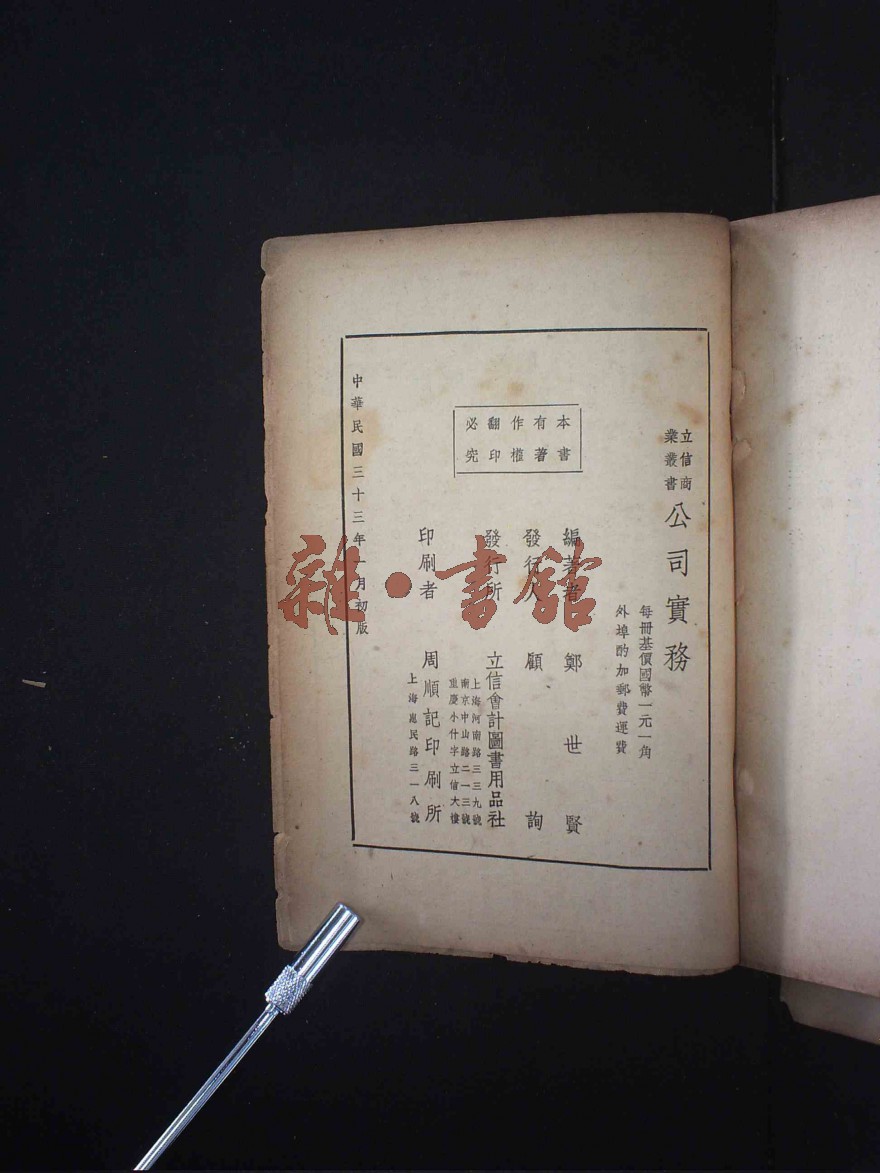 立信商
業叢書
公司實務
每冊基價國幣一元一角
外埠酌加郵費運費
本書
有著
作權
翻印
必究
編著者 鄭世賢
發行人 顧詢
發行所 立信會計圖書用品社
上海河南路三三九號
南京中山路二一三號
重慶小什字立信大樓
印刷者 周順記印刷所
上海崑民路三一八號
中華民國三十三年一月初版
雜·書館